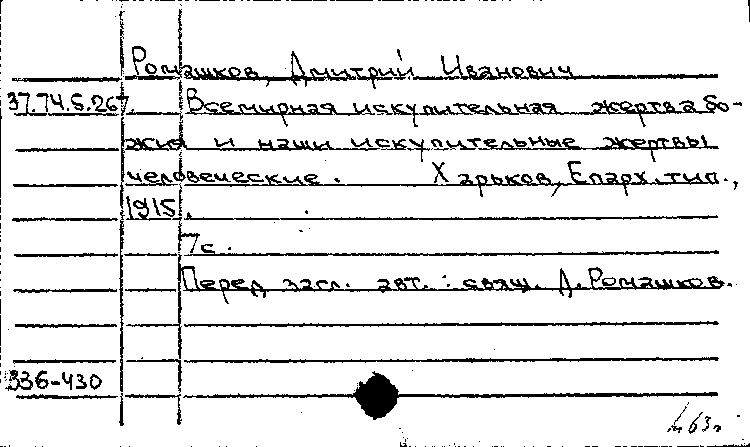 Ромашков, Дмитрий Иванович
37.74.5.267. Всемирная искупительная жертва бо-
жия и наши искупительные жертвы
человеческие. Харьков, Епарх. тип.,
1915.
7с.
Перед загл. авт.: свящ. Д. Ромашков.
336-430